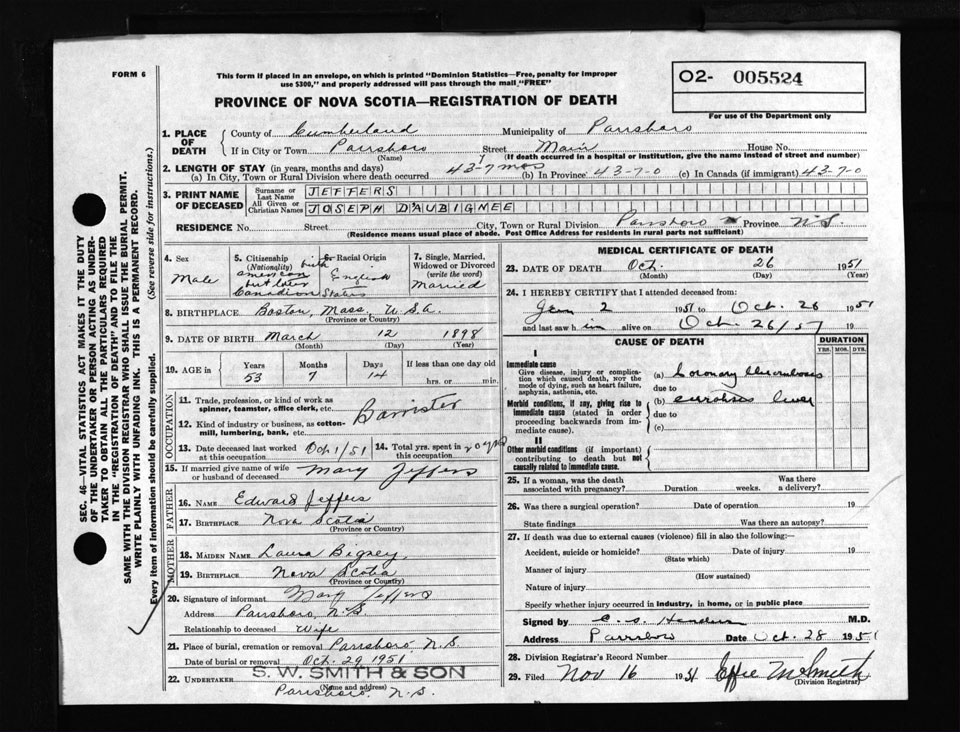 FORM 6
This form if placed in an envelope, on which is printed "Dominion Statistics—Free, penalty for improper
use $300," and properly addressed will pass through the mail "FREE"
O2- 005524
For use of the Department only
PROVINCE OF NOVA SCOTIA—REGISTRATION OF DEATH
1. PLACE OF DEATH { County of Cumberland Municipality of Parrsboro
If in City or Town Parrsboro Street Main House No.
(Name) (If death occurred in a hospital or institution, give the name instead of street and number)
2. LENGTH OF STAY (in years, months and days)
(a) In City, Town or Rural Division where death occurred 43-7 mos (b) In Province 43-7-0 (c) In Canada (if immigrant) 43-7-0
3. PRINT NAME OF DECEASED { Surname or Last Name JEFFERS
All Given or Christian Names JOSEPH D'AUBIGNEE
RESIDENCE No. Street City, Town or Rural Division Parrsboro Province N.S.
(Residence means usual place of abode. Post Office Address for residents in rural parts not sufficient)
4. Sex Male
5. Citizenship (Nationality) birth american but later Canadian States
6. or Racial Origin English
7. Single, Married, Widowed or Divorced (write the word) Married
8. BIRTHPLACE Boston, Mass, U.S.A.
(Province or Country)
9. DATE OF BIRTH March 12 1898
(Month) (Day) (Year)
10. AGE in Years 53 Months 7 Days 14 If less than one day old hrs. or min.
OCCUPATION
11. Trade, profession, or kind of work as spinner, teamster, office clerk, etc. Barrister
12. Kind of industry or business, as cotton-mill, lumbering, bank, etc.
13. Date deceased last worked at this occupation Oct 1/51 14. Total yrs. spent in this occupation 20 yrs
15. If married give name of wife or husband of deceased Mary Jeffers
FATHER
16. NAME Edward Jeffers
17. BIRTHPLACE Nova Scotia
(Province or Country)
MOTHER
18. MAIDEN NAME Laura Bigney
19. BIRTHPLACE Nova Scotia
(Province or Country)
20. Signature of informant Mary Jeffers
Address Parrsboro, N.S.
Relationship to deceased Wife
21. Place of burial, cremation or removal Parrsboro, N.S.
Date of burial or removal Oct. 29 1951
22. UNDERTAKER S. W. SMITH & SON
(Name and address)
Parrsboro, N.S.
MEDICAL CERTIFICATE OF DEATH
23. DATE OF DEATH Oct. 26 1951
(Month) (Day) (Year)
24. I HEREBY CERTIFY that I attended deceased from:
Jan 2 1951 to Oct. 26 1951
and last saw him alive on Oct. 26/51 19
CAUSE OF DEATH
DURATION
YRS. MOS. DYS.
I
Immediate cause
Give disease, injury or complication which caused death, NOT the mode of dying, such as heart failure, asphyxia, asthenia, etc.
(a) Coronary thrombosis
due to
Morbid conditions, if any, giving rise to immediate cause (stated in order proceeding backwards from immediate cause).
(b) cirrhosis liver
due to
(c)
II
Other morbid conditions (if important) contributing to death but not causally related to immediate cause.
25. If a woman, was the death associated with pregnancy? Duration weeks. Was there a delivery?
26. Was there a surgical operation? Date of operation 19
State findings Was there an autopsy?
27. If death was due to external causes (violence) fill in also the following:—
Accident, suicide or homicide? Date of injury 19
(State which)
Manner of injury
(How sustained)
Nature of injury
Specify whether injury occurred in industry, in home, or in public place
Signed by M.D.
Address Parrsboro Date Oct. 28 1951
28. Division Registrar's Record Number
29. Filed Nov 16 1951 Effie M Smith
(Division Registrar)
SEC. 46—VITAL STATISTICS ACT MAKES IT THE DUTY
OF THE UNDERTAKER OR PERSON ACTING AS UNDER-
TAKER TO OBTAIN ALL THE PARTICULARS REQUIRED
IN THE "REGISTRATION OF DEATH" AND TO FILE THE
SAME WITH THE DIVISION REGISTRAR WHO SHALL ISSUE THE BURIAL PERMIT.
WRITE PLAINLY WITH UNFADING INK. THIS IS A PERMANENT RECORD.
Every item of information should be carefully supplied. (See reverse side for instructions.)